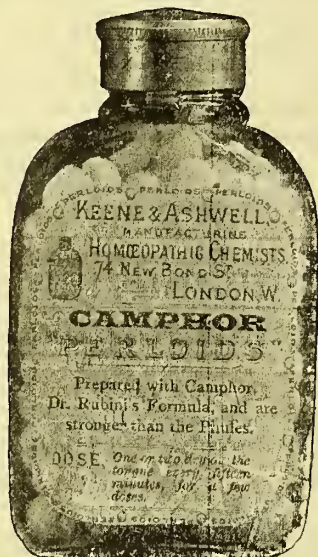 PERLOIDS PERLOIDS PERLOIDS
KEENE & ASHWELL
MANUFACTURING
HOMŒOPATHIC CHEMISTS,
74 NEW BOND ST
LONDON, W.
CAMPHOR
"PERLOIDS"
Prepared with Camphor,
Dr. Rubini's Formula, and are
stronger than the Pilules.
DOSE. One or two upon the
tongue every fifteen
minutes, for a few
doses.